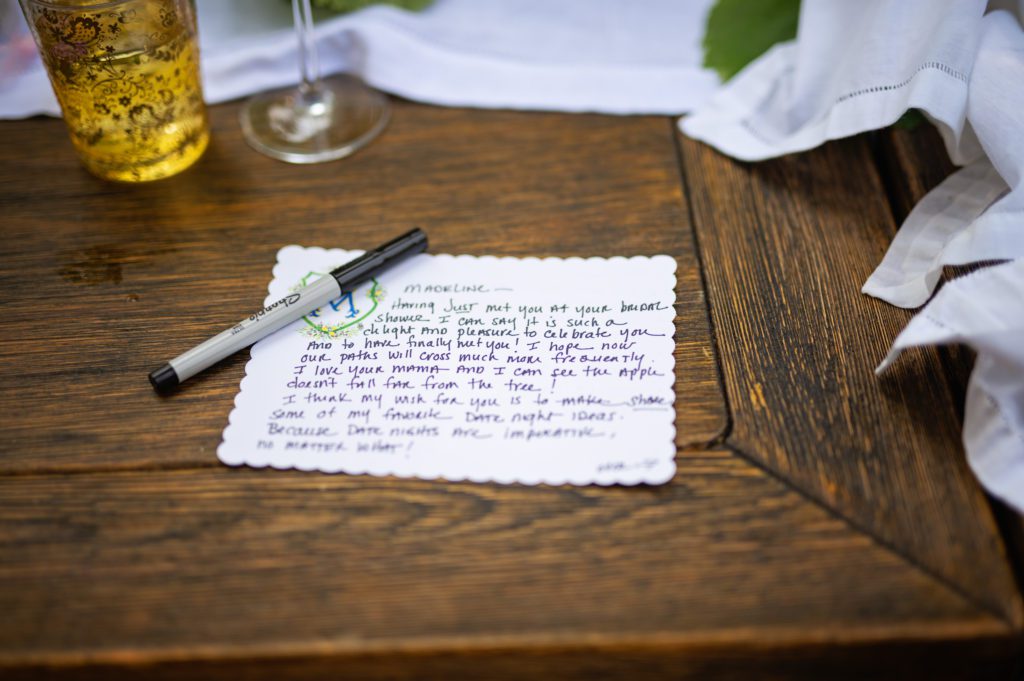 MADELINE —
Having Just met you at your bridal
shower I can say it is such a
delight and pleasure to celebrate you
and to have finally met you! I hope now
our paths will cross much more frequently.
I love your mama and I can see the apple
doesn't fall far from the tree!
I think my wish for you is to make share
some of my favorite date night ideas.
Because date nights are imperative,
no matter what!
Sharpie